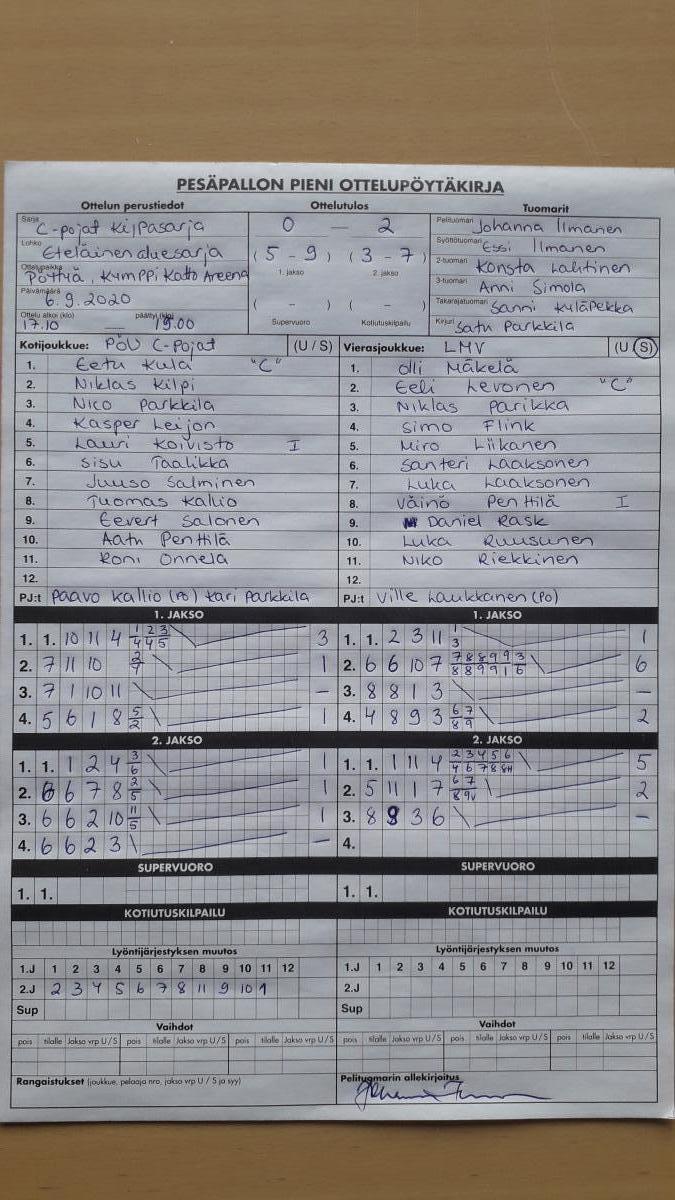 PESÄPALLON PIENI OTTELUPÖYTÄKIRJA
Ottelun perustiedot Ottelutulos Tuomarit
Sarja C-pojat Kilpasarja
Lohko Eteläinen aluesarja
Ottelupaikka Pöytyä, Kymppi Katto Areena
Päivämäärä 6.9.2020
Ottelu alkoi (klo) 17.10 — päättyi (klo) 19.00
0 — 2
(5 - 9) (3 - 7)
1. jakso 2. jakso
( - ) ( - )
Supervuoro Kotiutuskilpailu
Pelituomari Johanna Ilmanen
Syöttötuomari Essi Ilmanen
2-tuomari Konsta Lahtinen
3-tuomari Anni Simola
Takarajatuomari Sanni Kyläpekka
Kirjuri Satu Parkkila
Kotijoukkue: PöU C-Pojat (U / S)
1. Eetu Kulä "C"
2. Niklas Kilpi
3. Nico Parkkila
4. Kasper Leijon
5. Lauri Koivisto I
6. Sisu Taalikka
7. Juuso Salminen
8. Tuomas Kallio
9. Eevert Salonen
10. Aatu Penttilä
11. Roni Onnela
12.
PJ:t Paavo Kallio (PO) Kari Parkkila
Vierasjoukkue: LMV (U / S)
1. Olli Mäkelä
2. Eeli Levonen "C"
3. Niklas Parikka
4. Simo Flink
5. Miro Liikanen
6. Santeri Laaksonen
7. Luka Laaksonen
8. Väinö Penttilä I
9. Daniel Rask
10. Luka Ruusunen
11. Niko Riekkinen
12.
PJ:t Ville Laukkanen (PO)
1. JAKSO
1. 1. 10 11 4 1/4 2/4 3/5 3
2. 7 11 10 1
3. 7 1 10 11 —
4. 5 6 1 8 5/2 1
2. JAKSO
1. 1. 1 2 4 3/6 1
2. 6 6 7 8 2/5 1
3. 6 6 2 10 11/5 1
4. 6 6 2 3 —
SUPERVUORO
1. 1.
KOTIUTUSKILPAILU
1. JAKSO
1. 1. 2 3 11 1/3 1
2. 6 6 10 7 7/8 8/8 8/9 9/9 9/1 3/6 6
3. 8 8 1 3 —
4. 4 8 9 3 6/8 7/9 2
2. JAKSO
1. 1. 1 11 4 2/4 3/6 4/7 5/8 6/8 5
2. 5 11 1 7 6/8 7/9 2
3. 8 9 3 6 —
4.
SUPERVUORO
1. 1.
KOTIUTUSKILPAILU
Lyöntijärjestyksen muutos
1.J 1 2 3 4 5 6 7 8 9 10 11 12
2.J 2 3 4 5 6 7 8 11 9 10 1
Sup
Vaihdot
pois tilalle Jakso vrp U / S pois tilalle Jakso vrp U / S pois tilalle Jakso vrp U / S
Rangaistukset (joukkue, pelaaja nro, jakso vrp U / S ja syy)
Lyöntijärjestyksen muutos
1.J 1 2 3 4 5 6 7 8 9 10 11 12
2.J
Sup
Vaihdot
pois tilalle Jakso vrp U / S pois tilalle Jakso vrp U / S pois tilalle Jakso vrp U / S
Pelituomarin allekirjoitus